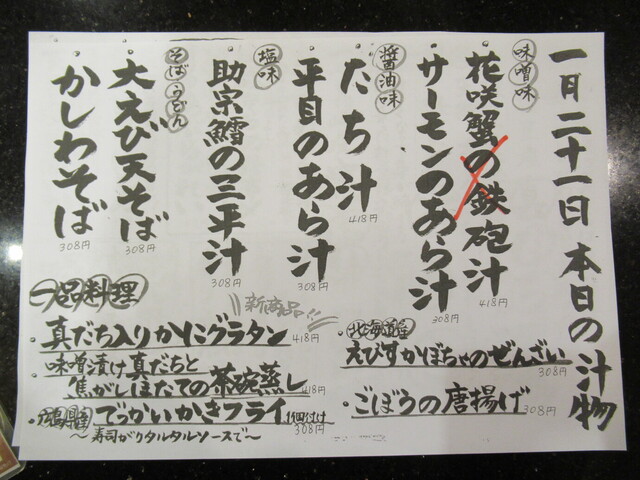 一月二十一日 本日の汁物
味噌味
花咲蟹の鉄砲汁
418円
サーモンのあら汁
308円
醤油味
たち汁
418円
平目のあら汁
308円
塩味
助宗鱈の三平汁
308円
そば・うどん
大えび天そば
308円
かしわそば
308円
一品料理
新商品!!
真だち入りかにグラタン 418円
味噌漬け真だちと
焦がしほたての茶碗蒸し 418円
でっかいかきフライ 1個付け
308円
〜寿司がりタルタルソースで〜
北海道産
えびすかぼちゃのぜんざい
308円
・ごぼうの唐揚げ 308円